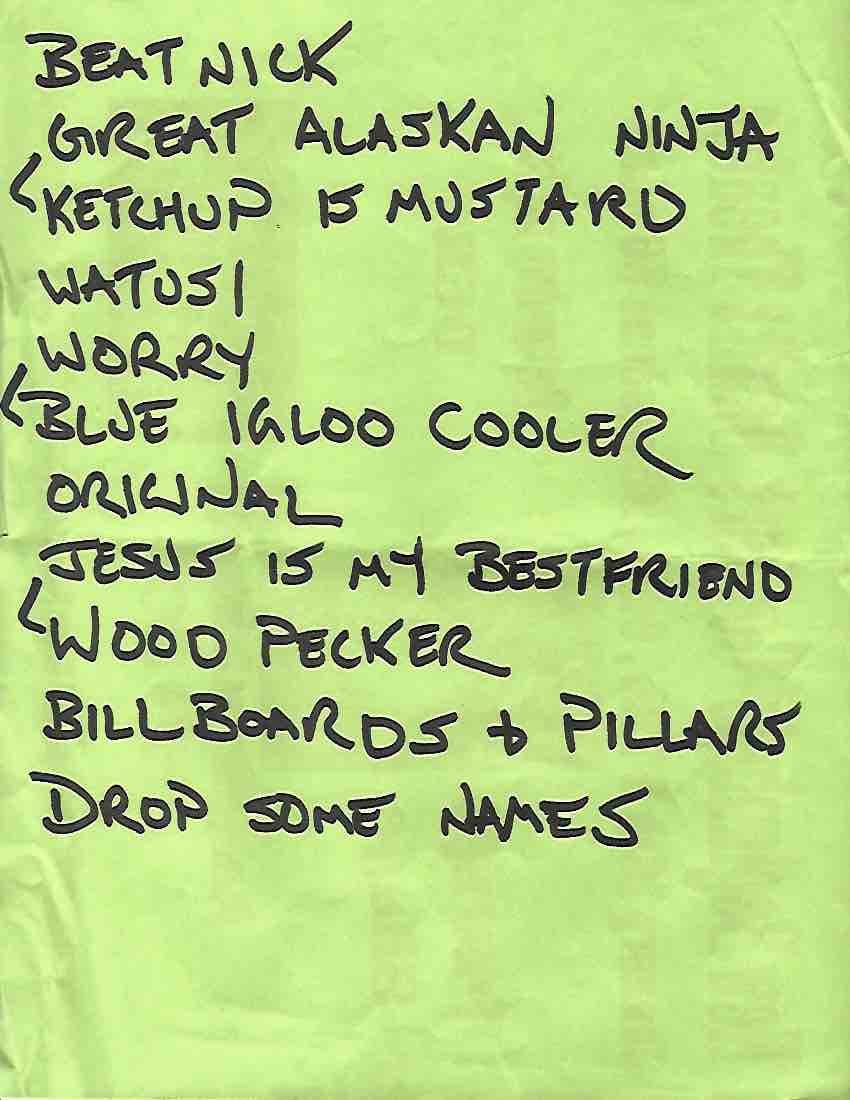 BEATNICK
GREAT ALASKAN NINJA
KETCHUP IS MUSTARD
WATUSI
WORRY
BLUE IGLOO COOLER
ORIGINAL
JESUS IS MY BESTFRIEND
WOOD PECKER
BILLBOARDS & PILLARS
DROP SOME NAMES